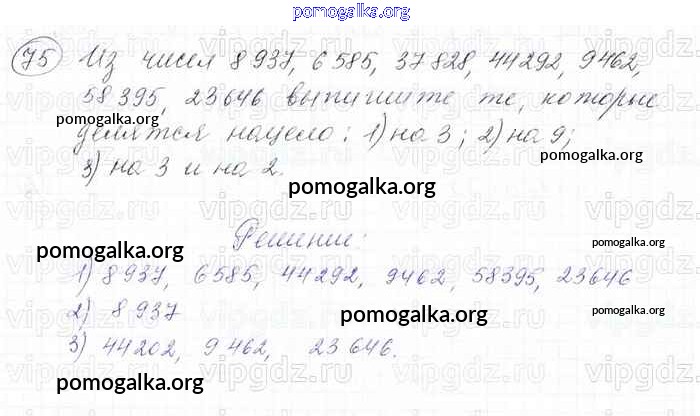 pomogalka.org
75 Из чисел 8 937, 6 585, 37 828, 44 292, 9 462,
58 395, 23 646 выпишите те, которые
pomogalka.org
делятся нацело: 1) на 3; 2) на 9;
pomogalka.org
3) на 3 и на 2.
pomogalka.org
vipgdz.ru
Решение:
pomogalka.org
pomogalka.org
1) 8 937, 6 585, 44 292, 9 462, 58 395, 23 646
2) 8 937
pomogalka.org
pomogalka.org
3) 44 202, 9 462, 23 646.
pomogalka.org
vipgdz.ru